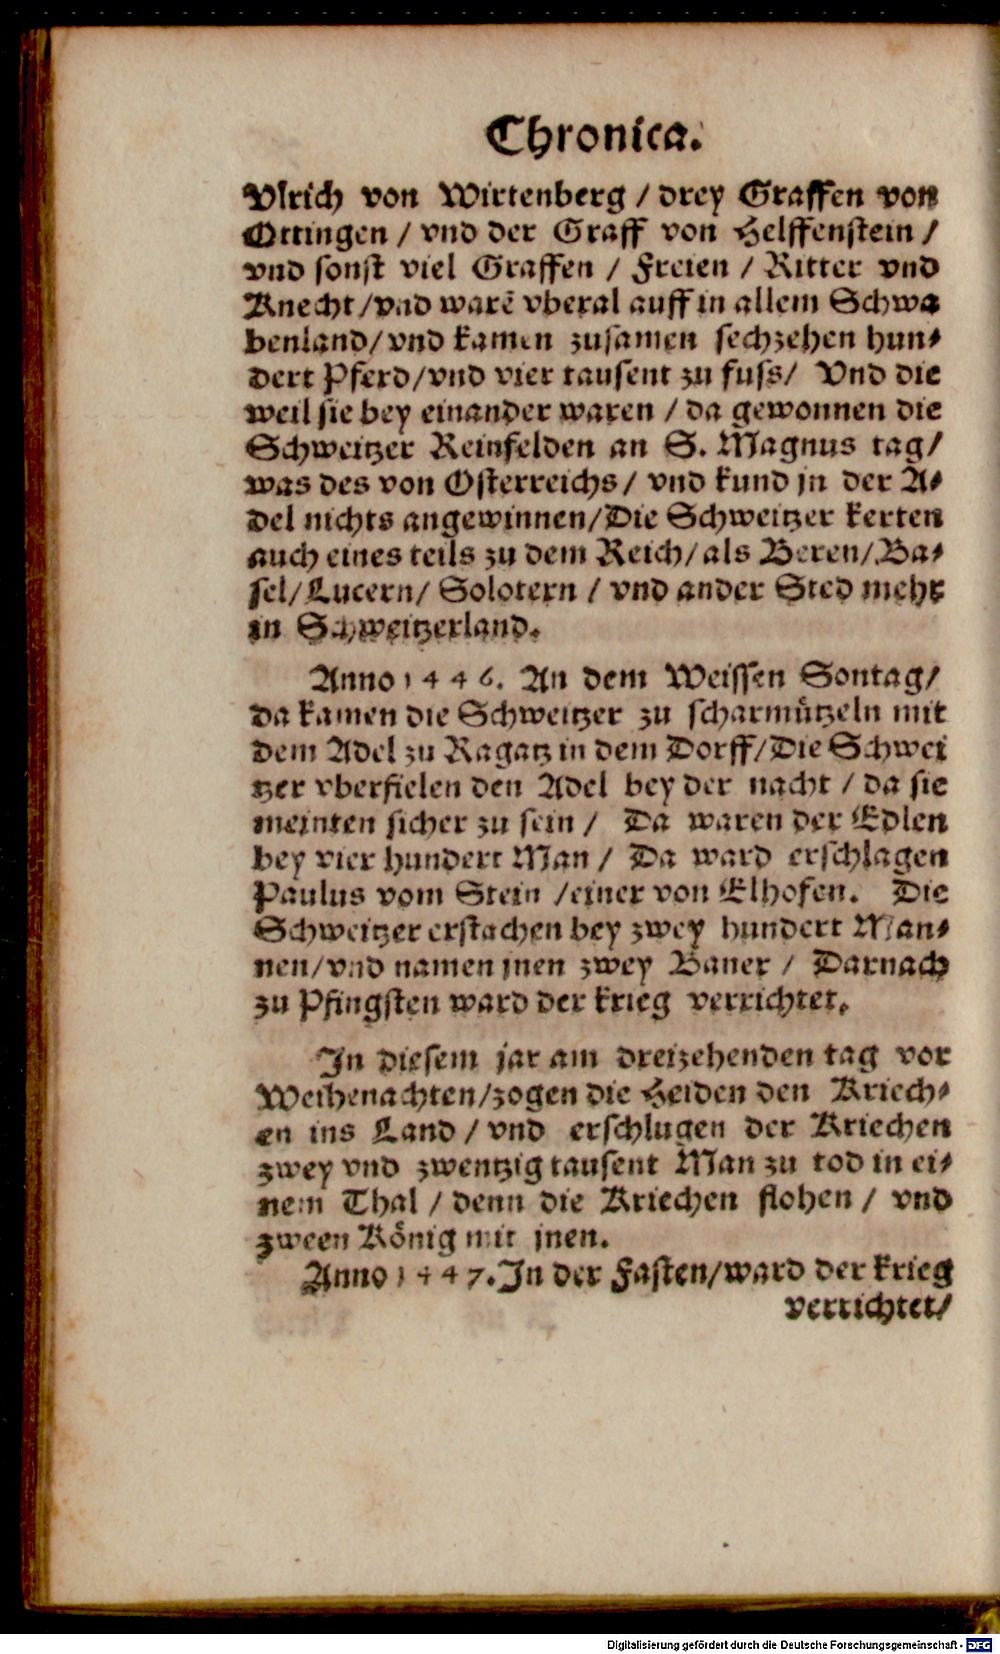 Chronica.
Vlrich von Wirtenberg / drey Graffen von
Ottingen / vnd der Graff von Helffenstein /
vnd sonst viel Graffen / Freien / Ritter vnd
Knecht /vnd warē vberal auff in allem Schwa
benland/ vnd kamen zusamen sechzehen hun⸗
dert Pferd/vnd vier tausent zu fuss/ Vnd die
weil sie bey einander waren / da gewonnen die
Schweitzer Reinfelden an S. Magnus tag/
was des von Osterreichs/ vnd kund jn der A⸗
del nichts angewinnen/Die Schweitzer kerten
auch eines teils zu dem Reich/ als Beren/Ba⸗
sel/ Lucern/ Solotern / vnd ander Sted mehr
in Schweitzerland.
Anno 1446. An dem Weissen Sontag/
da kamen die Schweitzer zu scharmützeln mit
dem Adel zu Ragatz in dem Dorff/Die Schwei
tzer vberfielen den Adel bey der nacht / da sie
meinten sicher zu sein / Da waren der Edlen
bey vier hundert Man / Da ward erschlagen
Paulus vom Stein /einer von Elhofen. Die
Schweitzer erstachen bey zwey hundert Man⸗
nen/vnd namen jnen zwey Baner / Darnach
zu Pfingsten ward der krieg verrichtet.
In diesem jar am dreizehenden tag vor
Weihenachten/zogen die Heiden den Kriech⸗
en ins Land / vnd erschlugen der Kriechen
zwey vnd zwentzig tausent Man zu tod in ei⸗
nem Thal / denn die Kriechen flohen / vnd
zween König mit jnen.
Anno 1447. In der Fasten/ward der krieg
verrichtet/
Digitalisierung gefördert durch die Deutsche Forschungsgemeinschaft - DFG